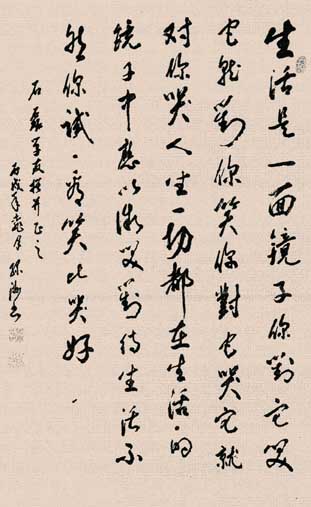 生活是一面镜子你對它笑
它就對你笑你對它哭它就
对你哭人生一切都在生活的
镜子中應以微笑對待生活不
然你试一看笑比哭好
石磊学友并正之
丙戌年月